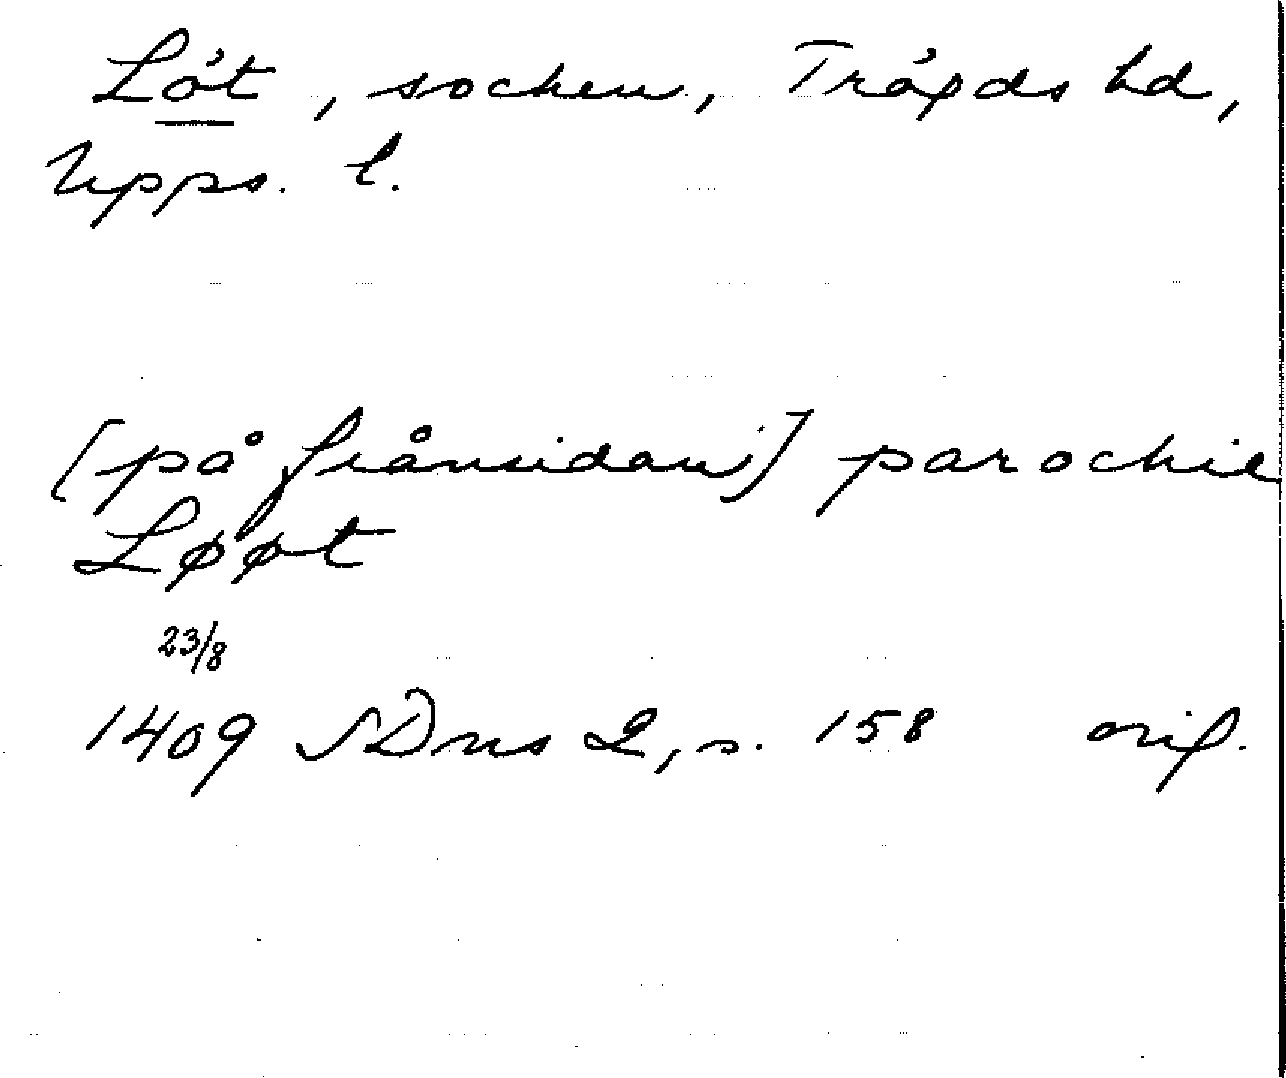 Löt, socken, Trögds hd,
Upps. l.
[på frånsidan] parochie
Løøt
23/8
1409 SDns 2, s. 158 orig.